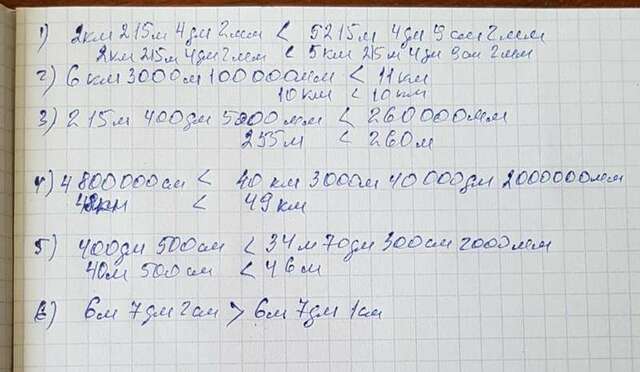 1) 2км 215м 4дм 2мм < 5215м 4дм 9см 2мм
2км 215м 4дм 2мм < 5км 215м 4дм 9см 2мм
2) 6км 3000м 1000000мм < 11км
10км < 10км
3) 215м 400дм 5000мм < 260000мм
255м < 260м
4) 4800000см < 40км 3000м 40000дм 2000000мм
48км < 49км
5) 400дм 500см < 34м 70дм 300см 2000мм
40м 500см < 46м
6) 6м 7дм 2см > 6м 7дм 1см